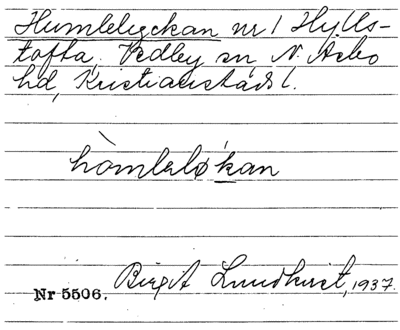 Humlelyckan nr 1 Hjälls-
tofta, Vedby sn, N. Åsbo
hd, Kristianstads l.
hòmlelǿkan
Birgit Lundkvist, 1937.
Nr 5506.